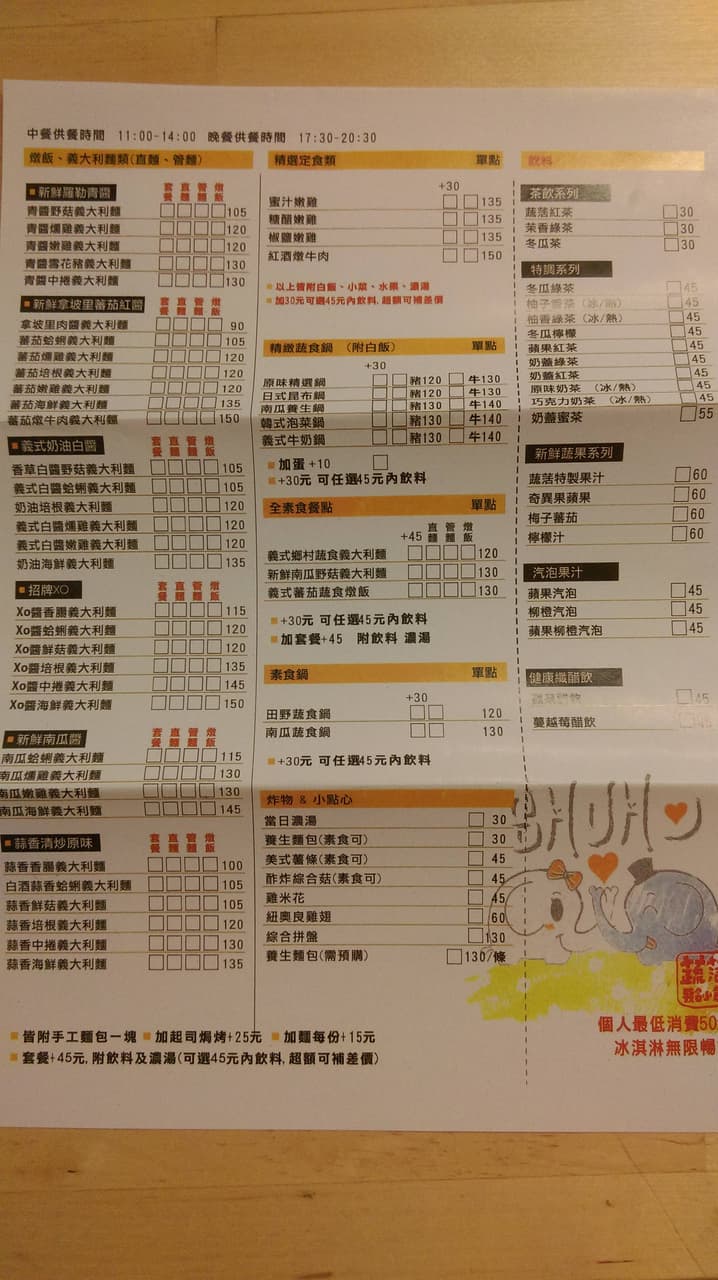 中餐供餐時間 11:00-14:00 晚餐供餐時間 17:30-20:30
燉飯、義大利麵類(直麵、管麵)
■新鮮羅勒青醬 套餐 直麵 管麵 燉飯
青醬野菇義大利麵 105
青醬燻雞義大利麵 120
青醬嫩雞義大利麵 120
青醬雪花豬義大利麵 130
青醬中捲義大利麵 130
■新鮮拿坡里蕃茄紅醬 套餐 直麵 管麵 燉飯
拿坡里肉醬義大利麵 90
蕃茄蛤蜊義大利麵 105
蕃茄燻雞義大利麵 120
蕃茄培根義大利麵 120
蕃茄嫩雞義大利麵 120
蕃茄海鮮義大利麵 135
蕃茄燉牛肉義大利麵 150
■義式奶油白醬 套餐 直麵 管麵 燉飯
香草白醬野菇義大利麵 105
義式白醬蛤蜊義大利麵 105
奶油培根義大利麵 120
義式白醬燻雞義大利麵 120
義式白醬嫩雞義大利麵 120
奶油海鮮義大利麵 135
■招牌XO 套餐 直麵 管麵 燉飯
Xo醬香腸義大利麵 115
Xo醬蛤蜊義大利麵 120
Xo醬鮮菇義大利麵 120
Xo醬培根義大利麵 135
Xo醬中捲義大利麵 145
Xo醬海鮮義大利麵 150
■新鮮南瓜醬 套餐 直麵 管麵 燉飯
南瓜蛤蜊義大利麵 115
南瓜燻雞義大利麵 130
南瓜嫩雞義大利麵 130
南瓜海鮮義大利麵 145
■蒜香清炒原味 套餐 直麵 管麵 燉飯
蒜香香腸義大利麵 100
白酒蒜香蛤蜊義大利麵 105
蒜香鮮菇義大利麵 105
蒜香培根義大利麵 120
蒜香中捲義大利麵 130
蒜香海鮮義大利麵 135
■皆附手工麵包一塊 ■加起司焗烤+25元 ■加麵每份+15元
■套餐+45元,附飲料及濃湯(可選45元內飲料,超額可補差價)
精選定食類 單點
+30
蜜汁嫩雞 135
糖醋嫩雞 135
椒鹽嫩雞 135
紅酒燉牛肉 150
■以上皆附白飯、小菜、水果、濃湯
■加30元可選45元內飲料,超額可補差價
精緻蔬食鍋 (附白飯) 單點
+30
原味精選鍋 豬120 牛130
日式昆布鍋 豬120 牛130
南瓜養生鍋 豬130 牛140
韓式泡菜鍋 豬130 牛140
義式牛奶鍋 豬130 牛140
■加蛋+10
■+30元 可任選45元內飲料
全素食餐點 單點
+45 直麵 管麵 燉飯
義式鄉村蔬食義大利麵 120
新鮮南瓜野菇義大利麵 130
義式蕃茄蔬食燉飯 130
■+30元 可任選45元內飲料
■加套餐+45 附飲料 濃湯
素食鍋 單點
+30
田野蔬食鍋 120
南瓜蔬食鍋 130
■+30元 可任選45元內飲料
炸物 & 小點心
當日濃湯 30
養生麵包(素食可) 30
美式薯條(素食可) 45
酥炸綜合菇(素食可) 45
雞米花 45
紐奧良雞翅 60
綜合拼盤 130
養生麵包(需預購) 130/條
飲料
茶飲系列
蔬活紅茶 30
茉香綠茶 30
冬瓜茶 30
特調系列
冬瓜綠茶 45
柚子香茶(冰/熱) 45
柚香綠茶(冰/熱) 45
冬瓜檸檬 45
蘋果紅茶 45
奶蓋綠茶 45
奶蓋紅茶 45
原味奶茶 (冰/熱) 45
巧克力奶茶 (冰/熱) 45
奶蓋蜜茶 55
新鮮蔬果系列
蔬活特製果汁 60
奇異果蘋果 60
梅子蕃茄 60
檸檬汁 60
汽泡果汁
蘋果汽泡 45
柳橙汽泡 45
蘋果柳橙汽泡 45
健康纖醋飲
45
蔓越莓醋飲 45
個人最低消費50
冰淇淋無限暢